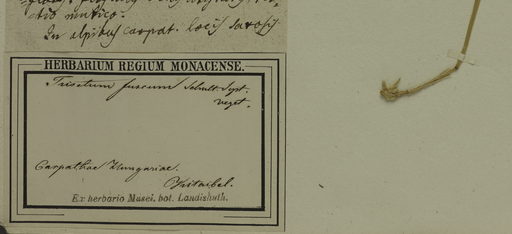 In alpibus carpat. locis saxosis
HERBARIUM REGIUM MONACENSE.
Trisetum fuscum Schult Syst.
veget.
Carpathae Hungariae.
Kitaibel.
Ex herbario Musei. bot. Landishuth.